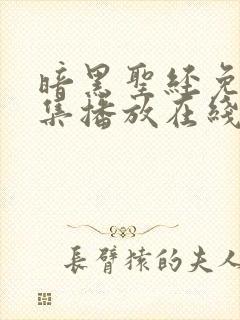 暗黑聖經免
集播放在綫
長臂猿的夫人